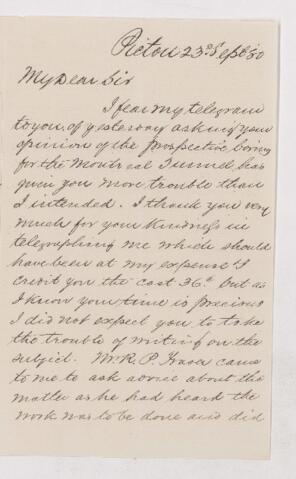 Pictou 23rd Sept 80
My Dear Sir
I fear my telegram
to you, of yesterday asking your
opinion of the prospective boring
for the Montreal Tunnel, has
given you more trouble than
I intended. I thank you very
much for your kindness in
telegraphing me which should
have been at my expense & I
credit you the cost 36c but as
I know your time is precious
I did not expect you to take
the trouble of writing on the
subject. Mr R. P. Fraser came
to me to ask advice about the
matter as he had heard the
work was to be done and did